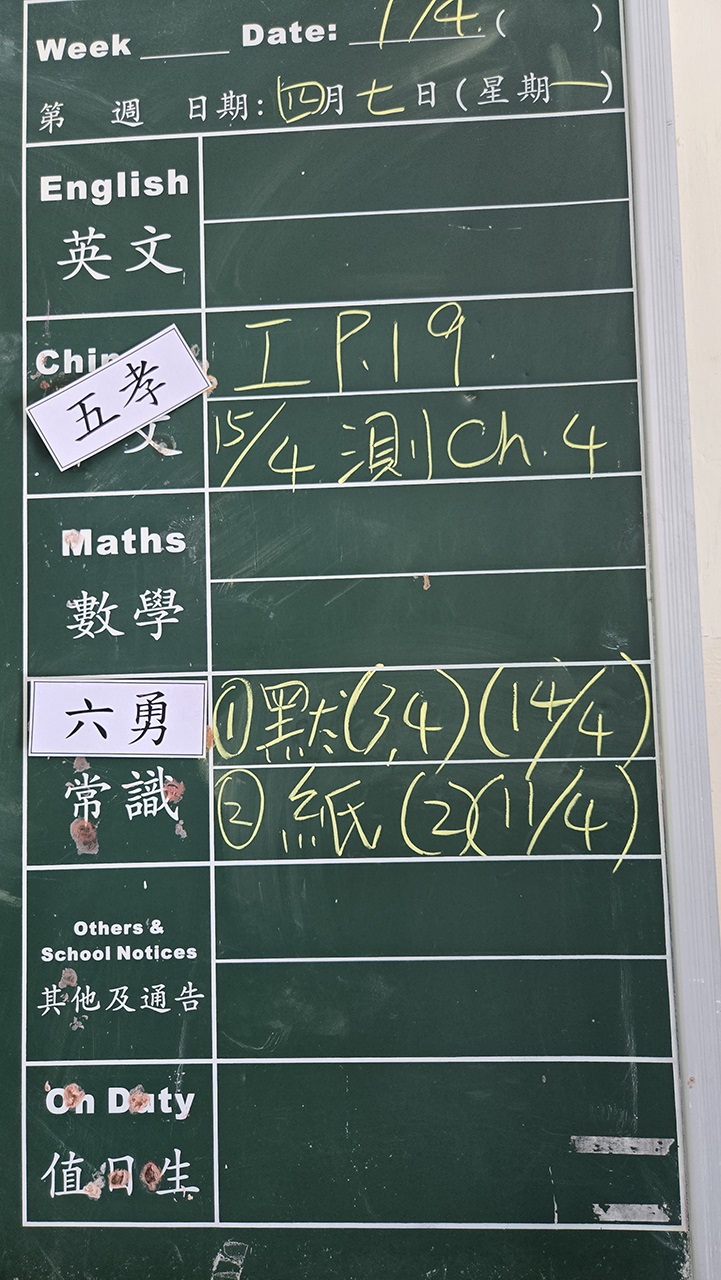 Week ____ Date: 7/4 ( )
第 週 日期: 四月七日(星期一)
English
英文
工 P.19.
五孝
文
15/4 測 Ch. 4
Maths
數學
六勇
①默(3,4)(14/4)
常識
②紙(2)(11/4)
Others &
School Notices
其他及通告
On Duty
值日生